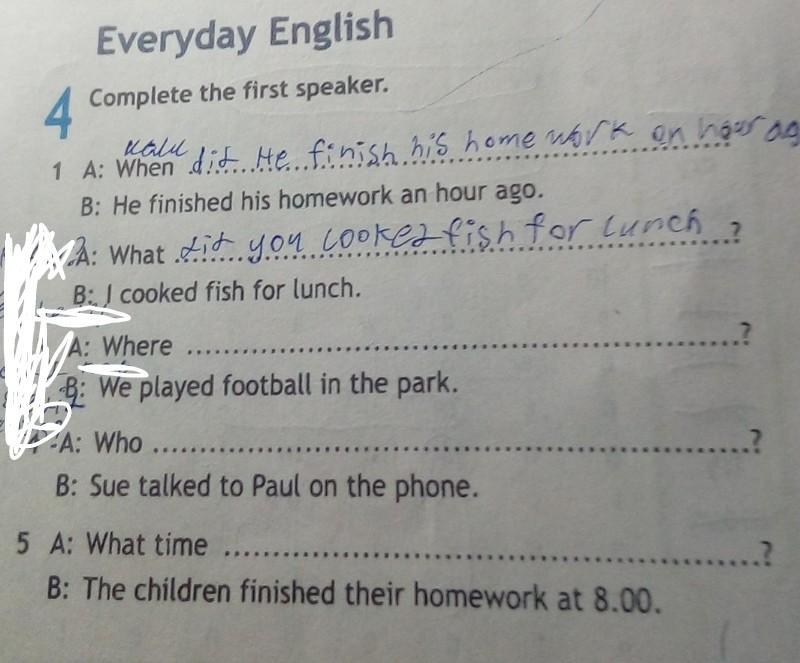 Everyday English
4 Complete the first speaker.
1 A: When did He finish his home work an hour ag
B: He finished his homework an hour ago.
A: What did you cooked fish for lunch ?
B: I cooked fish for lunch.
A: Where ........................................ ?
B: We played football in the park.
A: Who ........................................ ?
B: Sue talked to Paul on the phone.
5 A: What time ........................................ ?
B: The children finished their homework at 8.00.